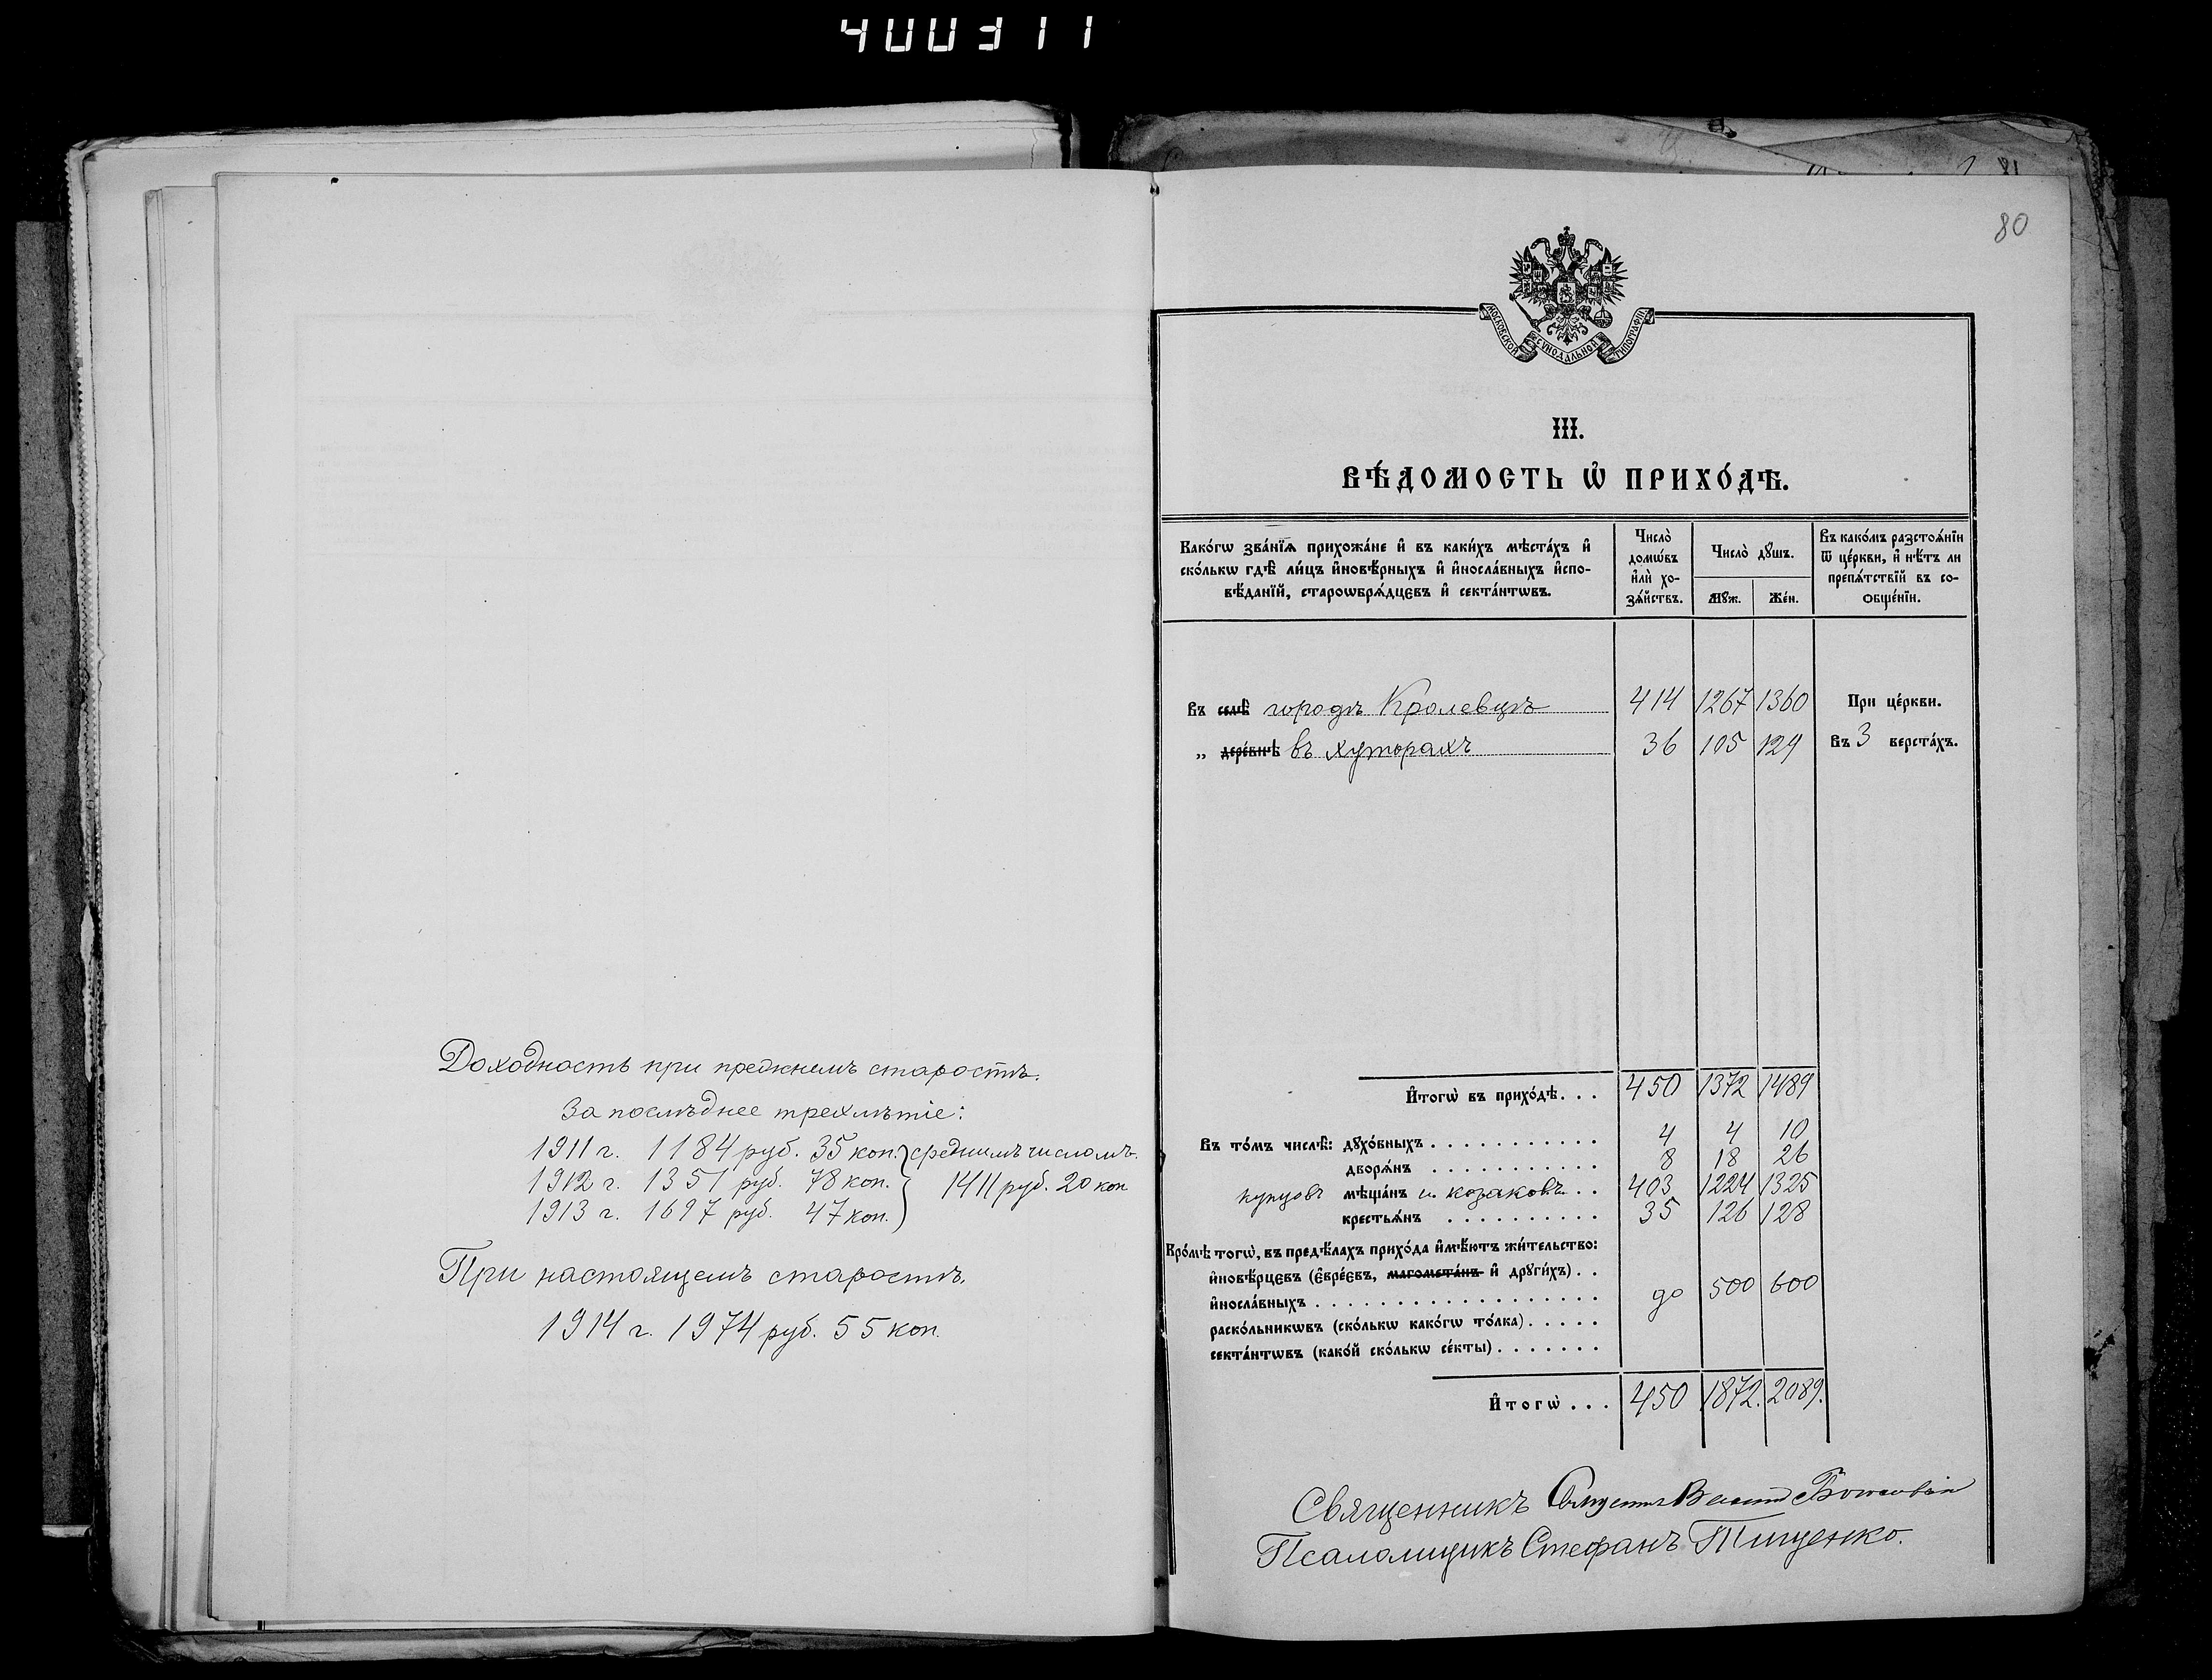 400311
Доходность при прежнемъ старостѣ.
За послѣднее трехлѣтіе:
1911 г. 1184 руб. 35 коп. } среднимъ числомъ.
1912 г. 1351 руб. 78 коп. } 1411 руб. 20 коп
1913 г. 1697 руб. 47 коп. }
При настоящемъ старостѣ.
1914 г. 1974 руб. 55 коп.
80
МОСКОВСКОЙ СѴНОДАЛЬНОЙ ТИПОГРАФІИ
III.
ВѢ́ДОМОСТЬ Ѡ҆ ПРИХО́ДѢ.
Како́гѡ зва́нїѧ прихожа́не и҆ въ каки́хъ мѣста́хъ и҆
ско́лькѡ гдѣ̀ ли́цъ и҆новѣ́рныхъ и҆ и҆носла́вныхъ и҆спо-
вѣ́данїй, староѡбрѧ́дцевъ и҆ секта́нтѡвъ.
Число̀
домѡ́въ
и҆лѝ хо-
зѧ́йствъ.
Число̀ дꙋ́шъ.
Мꙋ́ж.
Же́н.
Въ како́мъ разстоѧ́нїи
ѿ це́ркви, и҆ нѣ́тъ ли
препѧ́тствїй въ со-
обще́нїи.
Въ селѣ̀ городѣ Кролевцѣ 414 1267 1360 При це́ркви.
„ дере́внѣ въ хуторахъ 36 105 129 Въ 3 верста́хъ.
И҆тогѡ̀ въ прихо́дѣ... 450 1372 1489
Въ то́мъ числѣ̀: дꙋхо́вныхъ 4 4 10
дворѧ́нъ 8 18 26
купцовъ мѣща́нъ и козаковъ.. 403 1224 1325
крестьѧ́нъ 35 126 128
Кро́мѣ тогѡ̀, въ предѣ́лахъ прихо́да и҆мѣ́ютъ жи́тельство:
и҆новѣ́рцевъ (є҆вре́євъ, магомета́нъ и҆ дрꙋги́хъ)..
и҆носла́вныхъ до 500 600
раско́льникѡвъ (ско́лькѡ како́гѡ то́лка).....
секта́нтѡвъ (како́й ско́лькѡ се́кты).......
И҆тогѡ̀... 450 1872. 2089.
Священникъ
Псаломщикъ Стефанъ Тищенко.